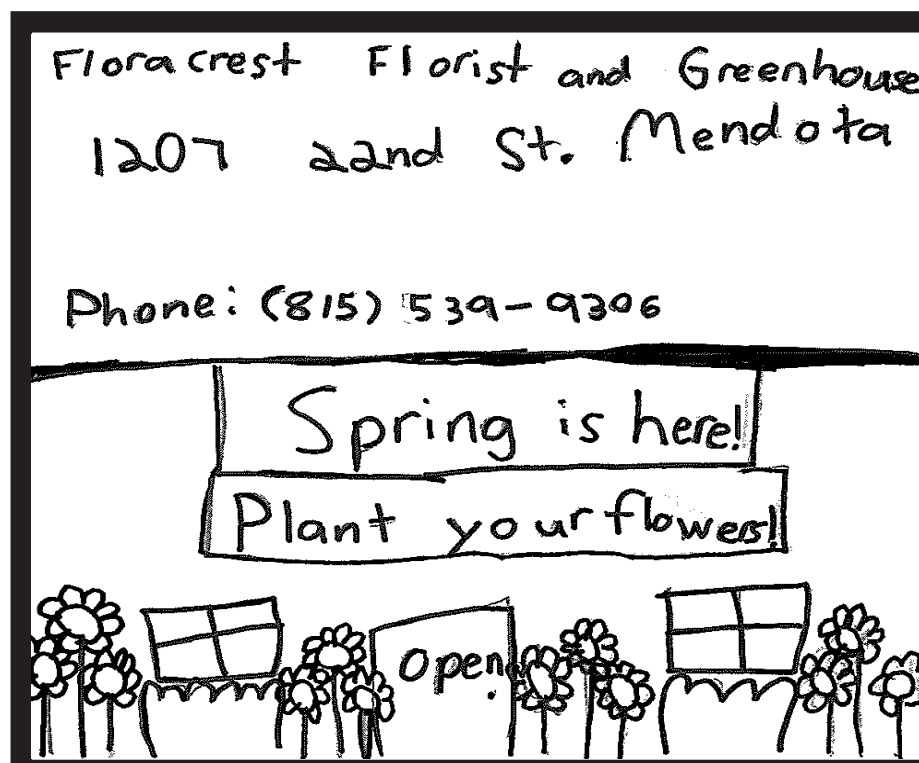 Floracrest Florist and Greenhouse
1207 22nd St. Mendota
Phone: (815) 539-9306
Spring is here!
Plant your flowers!
Open